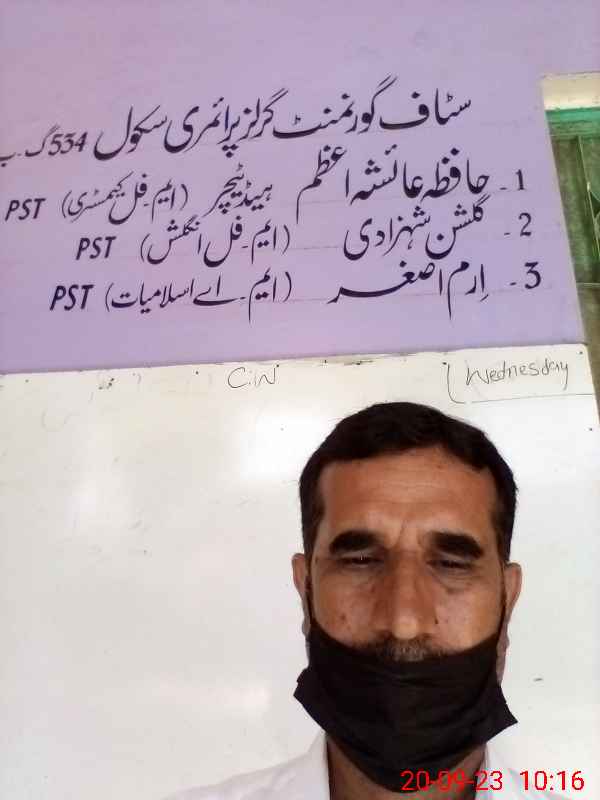 سٹاف گورنمنٹ گرلز پرائمری سکول 534 گ۔ب
1۔ حافظہ عائشہ اعظم ہیڈ ٹیچر (ایم۔فل کیمسٹری) PST
2۔ گلشن شہزادی (ایم۔فل انگلش) PST
3۔ اِرم اصغر (ایم۔اے اسلامیات) PST
C.W
Wednesday
20-09-23 10:16